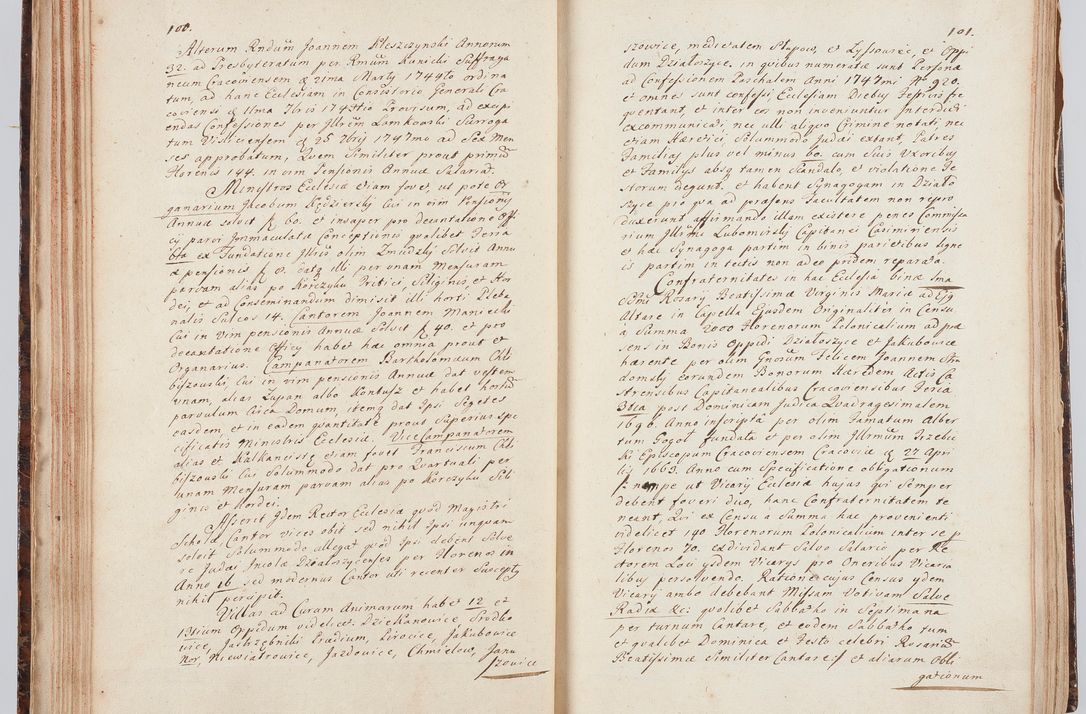 100.
Alterum Rndum Joannem Kleszczynski Annorum
32. ad Presbyteratum per Rmum Kunicki Suffraga
neum Cracoviensem d 21ma Marty 1749to ordina
tum, ad hanc Ecclesiam in Consistorio Generali Cra
coviensi d 11ma 7bris 1747tio Provisum, ad excipi
endas Confessiones per Illrem Lamkowski Surroga
tum Visliciensem d 25 7bris 1747mo ad Sex Men
ses approbatum, Quem Similiter prout primum
Florenis 144. in vim Pensionis Annuæ Salariat.
Ministros Ecclesiæ etiam fovet, ut pote Or
ganarium Jacobum Kędzierski Cui in vim Pensionis
Annuæ solvit f 60. et insuper pro decantatione Offi
cy parvi Immaculatæ Conceptionis qualibet Feria
6ta ex Fundatione Illris olim Zmudzki Solvit Annu
æ pensionis f 8. Dat illi per unam Mensuram
parvam alias po Korczyku Tritici, Siliginis, et Hor
dei, et ad Conseminandum dimisit illi horti Pleba
nalis Sulcos 14. Cantorem Joannem Maniecki
Cui in vim pensionis Annuæ Solvit f 40. et pro
decantatione Officy habet hæc omnia prout et
Organarius. Campanatorem Bartholomæum Chli
biszowski, Cui in vim pensionis Annuæ dat vestem
unam, alias Zupan albo Kontusz et habet hortum
parvulum Circa Domum, item dat Ipsi Segetes
easdem et in eadem quantitate prout Superius spe
cificatis Ministris Ecclesiæ. ViceCampanatorem
alias et Kalkancistę etiam fovet Franciscum Chli
biszowski Cui Solummodo dat pro Quartuali, per
unam Mensuram parvam alias po Korczyku Sili
ginis et Hordei.
Asserit Idem Rector Ecclesiæ quod Magistri
Scholæ, Cantor vices obit sed nihil Ipsi unquam
solvit Solummodo allegat quod Ipsi debent Solve
re Judæi Incolæ Działoszycenses per Florenos in
Anno 16 sed modernus Cantor uti recenter Susceptus
nihil percipit.
Villas ad Curam Animarum habet 12 et
13tium Oppidum videlicet Dziekanowice, Srodko
wice, Jastrzębniki Prædium, Lirocice, Jakubowice
Nor, Niewiatrowice, Jazdowice, Chmielow, Janu
szowice
101.
szowice, medietatem Stapow, et Lyssowiec, et Oppi
dum Działoszyce. in quibus numeratæ sunt Personæ
ad Confessionem Paschalem Anni 1747mi No 920.
et omnes sunt confessi Ecclesiam Diebus Festivis fre
quentant, et inter eos non inveniuntur Interdicti
excommunicati, nec ulli aliquo Crimine notati, nec
etiam Hæretici, Solummodo Judæi extant, Patres
Familias plus vel minus 60. cum Suis Uxoribus
et Familys absq tamen Scandalo, et violatione Fe
storum degunt. et habent Synagogam in Działo
szyce pro qua ad præsens facultatem non repro
duxerunt affirmando illam existere penes Commissa
rium Illris Lubomirski Capitanei Casimiriensis
et hæc Synagoga partim in binis parietibus ligne
is partim in tectis non adeo pridem reparata.
Confraternitates in hac Ecclesia binæ 1ma
SSmi Rosary Beatissimæ Virginis Mariæ ad Ejus
Altare in Capella Ejusdem Originalitus in Censu
a Summa 2000 Florenorum Polonicalium ad præ
sens in Bonis Oppidi Działoszyce et Jakubowice
hærente per olim Gnosum Felicem Joannem Stra
domski eorundem Bonorum Hæredem Actis Ca
strensibus Capitanealibus Cracoviensibus Feria
3tia post Dominicam Judica Quadragesimalem
1690. Anno inscripta per olim Famatum Alber
tum Gogoł fundata et per olim Illrmum Trzebic
ki Episcopum Cracoviensem Cracoviæ d 27 Apri
lis 1663. Anno cum Specificatione obligationum
nempe ut Vicary Ecclesiæ hujus qui Semper
debent foveri duo, hanc Confraternitatem te
neant, Qui ex Censu a Summa hac provenienti
videlicet 140 Florenorum Polonicalium inter se p
Florenos 70. exdividant Salvo Salario per Re
ctorem Loci ysdem Vicarys pro Oneribus Vicaria
libus persolvendo. Ratione cujus Census ydem
Vicary ambo debebunt Missam Votivam Salve
Radix &c: quolibet Sabbatho in Septimana
per turnum Cantare, et eodem Sabbatho tum
et qualibet Dominica et Festo celebri Rosarium
Beatissimæ Similiter Cantare f et aliarum Obli
gationum